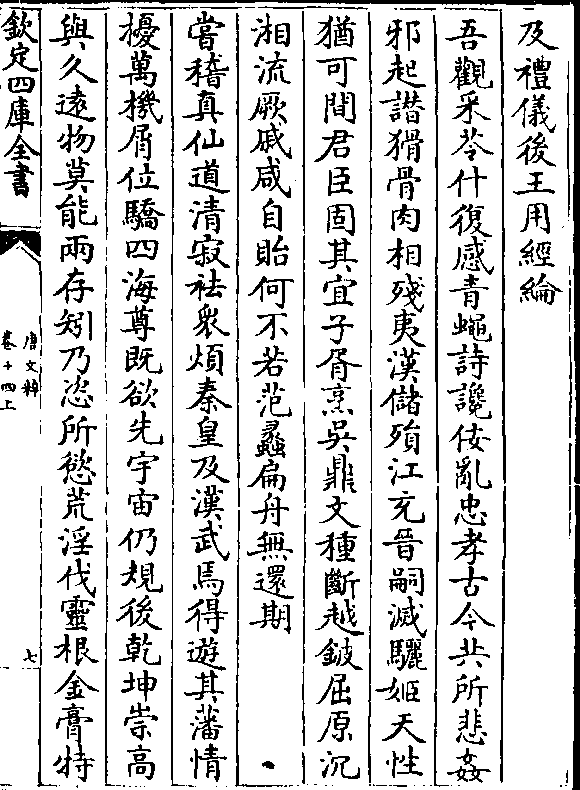 及禮儀後王用經綸
吾觀采苓什復感青蠅詩讒佞亂忠孝古今共所悲姦
邪起譖猾骨肉相殘夷漢儲殞江充晉嗣滅驪姬天性
猶可間君臣固其宜子胥烹吳鼎文種斷越鈹屈原沉
湘流厥戚咸自貽何不若范蠡扁舟無還期
嘗稽真仙道清寂祛衆煩秦皇及漢武焉得遊其藩情
擾萬機屑位驕四海尊既欲先宇宙仍規後乾坤崇高
與久遠物莫能兩存矧乃恣所慾荒淫伐靈根金膏特
欽定四庫全書
唐文粹
卷十四上
七